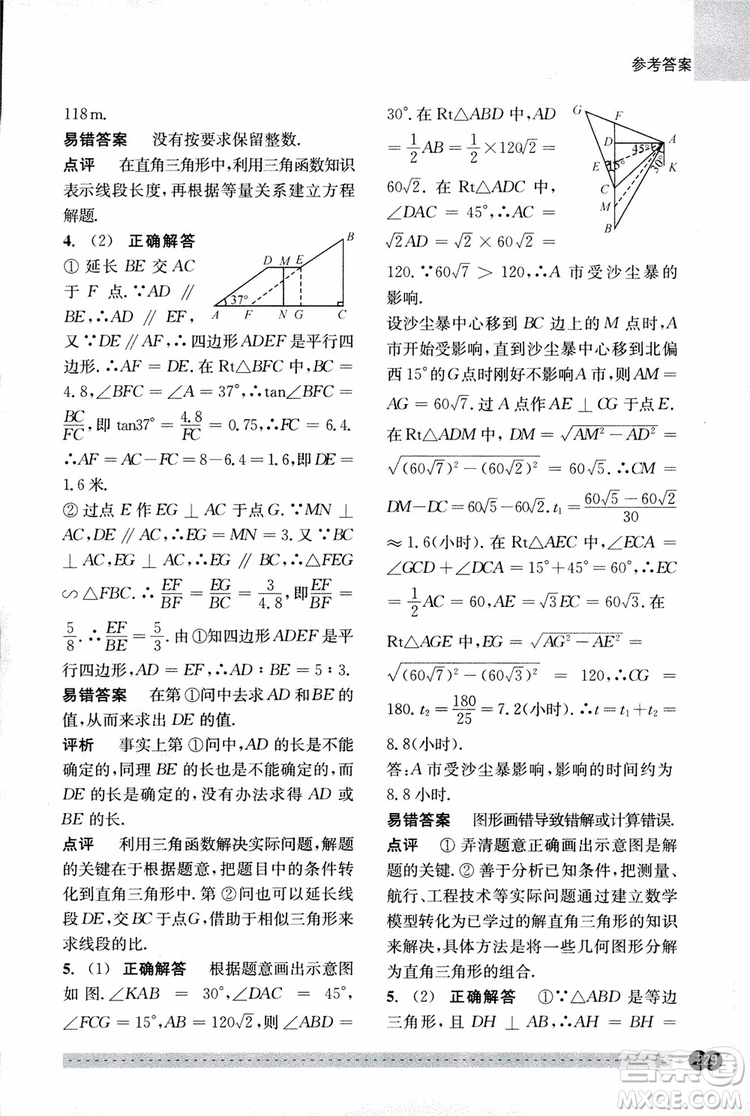 参考答案
118 m.
易错答案 没有按要求保留整数.
点评 在直角三角形中，利用三角函数知识
表示线段长度，再根据等量关系建立方程
解题.
4. （2） 正确解答
① 延长 BE 交 AC
于 F 点. ∵AD ∥
BE，∴AD ∥ EF，
又∵DE∥AF，∴四边形 ADEF 是平行四
边形. ∴AF = DE. 在 Rt△BFC 中，BC =
4.8，∠BFC = ∠A = 37°，∴tan∠BFC =
BC/FC，即 tan37° = 4.8/FC = 0.75，∴FC = 6.4.
∴AF = AC－FC = 8－6.4 = 1.6，∴DE =
1.6 米.
② 过点 E 作 EG ⊥ AC 于点 G. ∵MN ⊥
AC，DE∥AC，∴EG = MN = 3. 又∵BC ⊥
AC，EG ⊥ AC，∴EG ∥ BC，∴△FEG
∽ △FBC. ∴EF/BF = EG/BC = 3/4.8，即EF/BF =
5/8. ∴EF/BE = 5/3. 由①知四边形 ADEF 是平
行四边形，AD = EF，∴AD∶BE = 5∶3.
易错答案 在第①问中去求 AD 和 BE 的
值，从而来求出 DE 的值.
评析 事实上第①问中，AD 的长是不能
确定的，同理 BE 的长也是不能确定的，而
DE 是可以确定的，没有办法求得 AD 或
BE 的长.
点评 利用三角函数解决实际问题，解题
的关键在于根据题意，把题目中的条件转
化到直角三角形中. 第②问也可以延长线
段 DE，交 BC 于点G，借助于相似三角形来
求线段的比.
5. （1） 正确解答 根据题意画出示意图
如图. ∠KAB = 30°，∠DAC = 45°，
∠FCG = 15°，AB = 120√2，∴∠ABD =
D M E B
A 37° F N G C
30°. 在 Rt△ABD 中，AD
= 1/2 AB = 1/2 × 120√2 =
60√2. 在 Rt△ADC 中，
∠DAC = 45°，∴AC =
√2AD = √2 × 60√2 =
120. ∵60√7 ＞ 120，∴A 市受沙尘暴的
影响.
G F D A 45° E 15° K C 30° M B
设沙尘暴中心移到 BC 边上的 M 点时，A
市开始受影响，直到沙尘暴中心移到北偏
西 15°的 G 点时刚好不影响 A 市，则 AM =
AG = 60√7. 过 A 点作 AE ⊥ CG 于点 E.
在 Rt△ADM 中，DM = √(AM²－AD²) =
√((60√7)²－(60√2)²) = 60√5，∴CM =
DM－DC = 60√5－60√2. ∴t₁ = (60√5－60√2)/30
≈ 1.6(小时). 在 Rt△AEC 中，∠ECA =
∠GCD＋∠DCA = 15°＋45° = 60°，∴EC
= 1/2 AC = 60，AE = √3EC = 60√3. 在
Rt△AGE 中，EG = √(AG²－AE²) =
√((60√7)²－(60√3)²) = 120，∴CG =
180. t₂ = 180/25 = 7.2(小时). ∴t = t₁＋t₂ =
8.8(小时).
答：A 市受沙尘暴影响，影响的时间约为
8.8小时.
易错答案 图形画错导致错解或计算错误.
点评 ① 弄清题意正确画出示意图是解
题的关键. ② 善于分析已知条件，把测量、
航行、工程技术等实际问题通过建立数学
模型转化为已学过的解直角三角形的知识
来解决，具体方法是将一些几何图形分割
为直角三角形的组合.
5. （2） 正确解答 ①∵△ABD 是等边
三角形，且 DH ⊥ AB，∴AH = BH =
答案圈
MXQE.COM